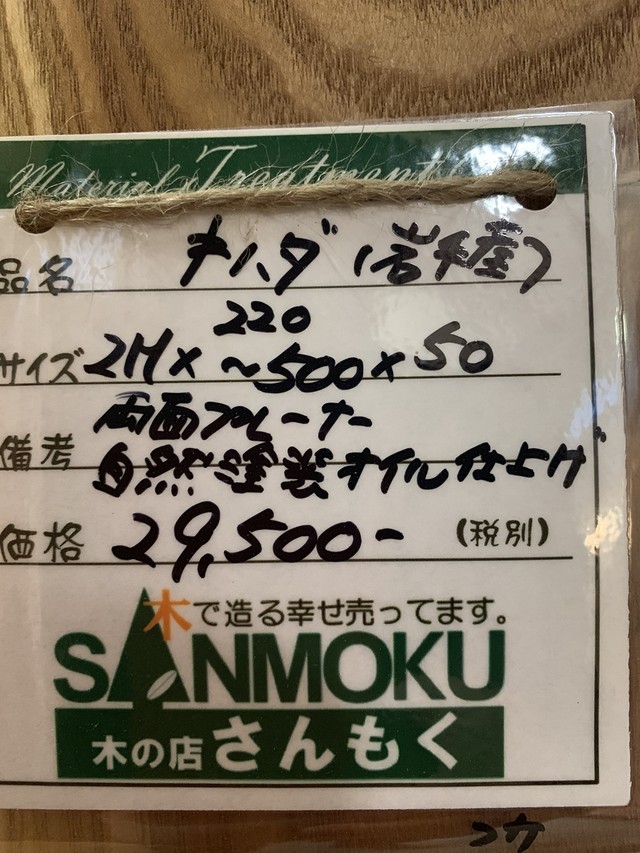 Material Treatment
品名 キハダ(岩手産)
220
サイズ 2M× ~500×50
両面プレーナー
備考 自然塗装オイル仕上げ
価格 29,500- (税別)
木で造る幸せ売ってます。
SANMOKU
木の店さんもく